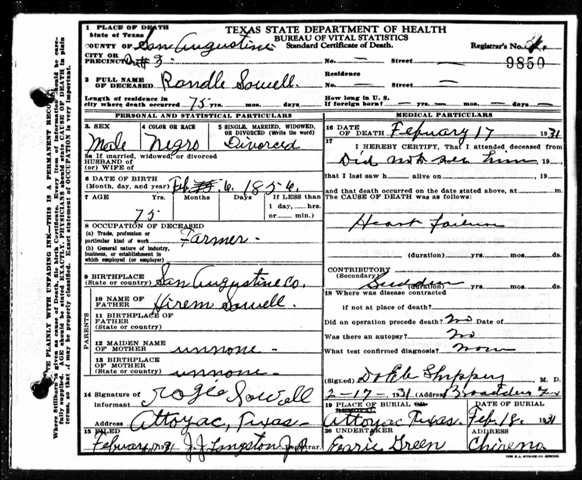 1 PLACE OF DEATH
State of Texas
TEXAS STATE DEPARTMENT OF HEALTH
BUREAU OF VITAL STATISTICS
COUNTY OF San Augustine Standard Certificate of Death. Registrar's No.
PRECINCT #3. No. — Street — 9850
2 FULL NAME OF DECEASED Randle Sowell. Residence No. Street
Length of residence in city where death occurred 75 yrs. mos. days. How long in U. S. if foreign born? — yrs. — mos. — days.
PERSONAL AND STATISTICAL PARTICULARS
3. SEX Male
4 COLOR OR RACE Negro
5 SINGLE, MARRIED, WIDOWED, OR DIVORCED (Write the word) Divorced
5a If married, widowed, or divorced
HUSBAND OF
(or) WIFE OF
6 DATE OF BIRTH
(Month, day, and year) Feb. 6, 1856.
7 AGE Years Months Days If LESS than
75 1 day, ---hrs.
or ---- min.)
8 OCCUPATION OF DECEASED
(a) Trade, profession or particular kind of work Farmer -
(b) General nature of industry, business, or establishment in which employed (or employer)
9 BIRTHPLACE
(State or country) San Augustine Co.
PARENTS
10 NAME OF FATHER Hirem Sowell.
11 BIRTHPLACE OF FATHER
(State or country)
12 MAIDEN NAME OF MOTHER unnone -
13 BIRTHPLACE OF MOTHER
(State or country) unnone -
14 Signature of informant Rogie Sowell
Address Attoyac, Texas.
15 FILED Febuary 1931 J. J. Langston J.P. Registrar.
MEDICAL PARTICULARS
16 DATE OF DEATH Febuary 17 1931
17 I HEREBY CERTIFY, That I attended deceased
from Did not see him
that I last saw h alive on
and that death occurred on the date stated above, at m.
The CAUSE OF DEATH was as follows:
Heart failure
(duration) yrs. mos. ds.
CONTRIBUTORY
(Secondary) Sudden
(duration) yrs. mos. ds.
18 Where was disease contracted
if not at place of death?
Did an operation precede death? No Date of
Was there an autopsy? No
What test confirmed diagnosis? None
(Signed) M. D.
2-17-1931 (Address) Broaddus Tx
19 PLACE OF BURIAL Attoyac Texas. DATE OF BURIAL Feb. 18, 1931
20 UNDERTAKER Green ADDRESS Chireno